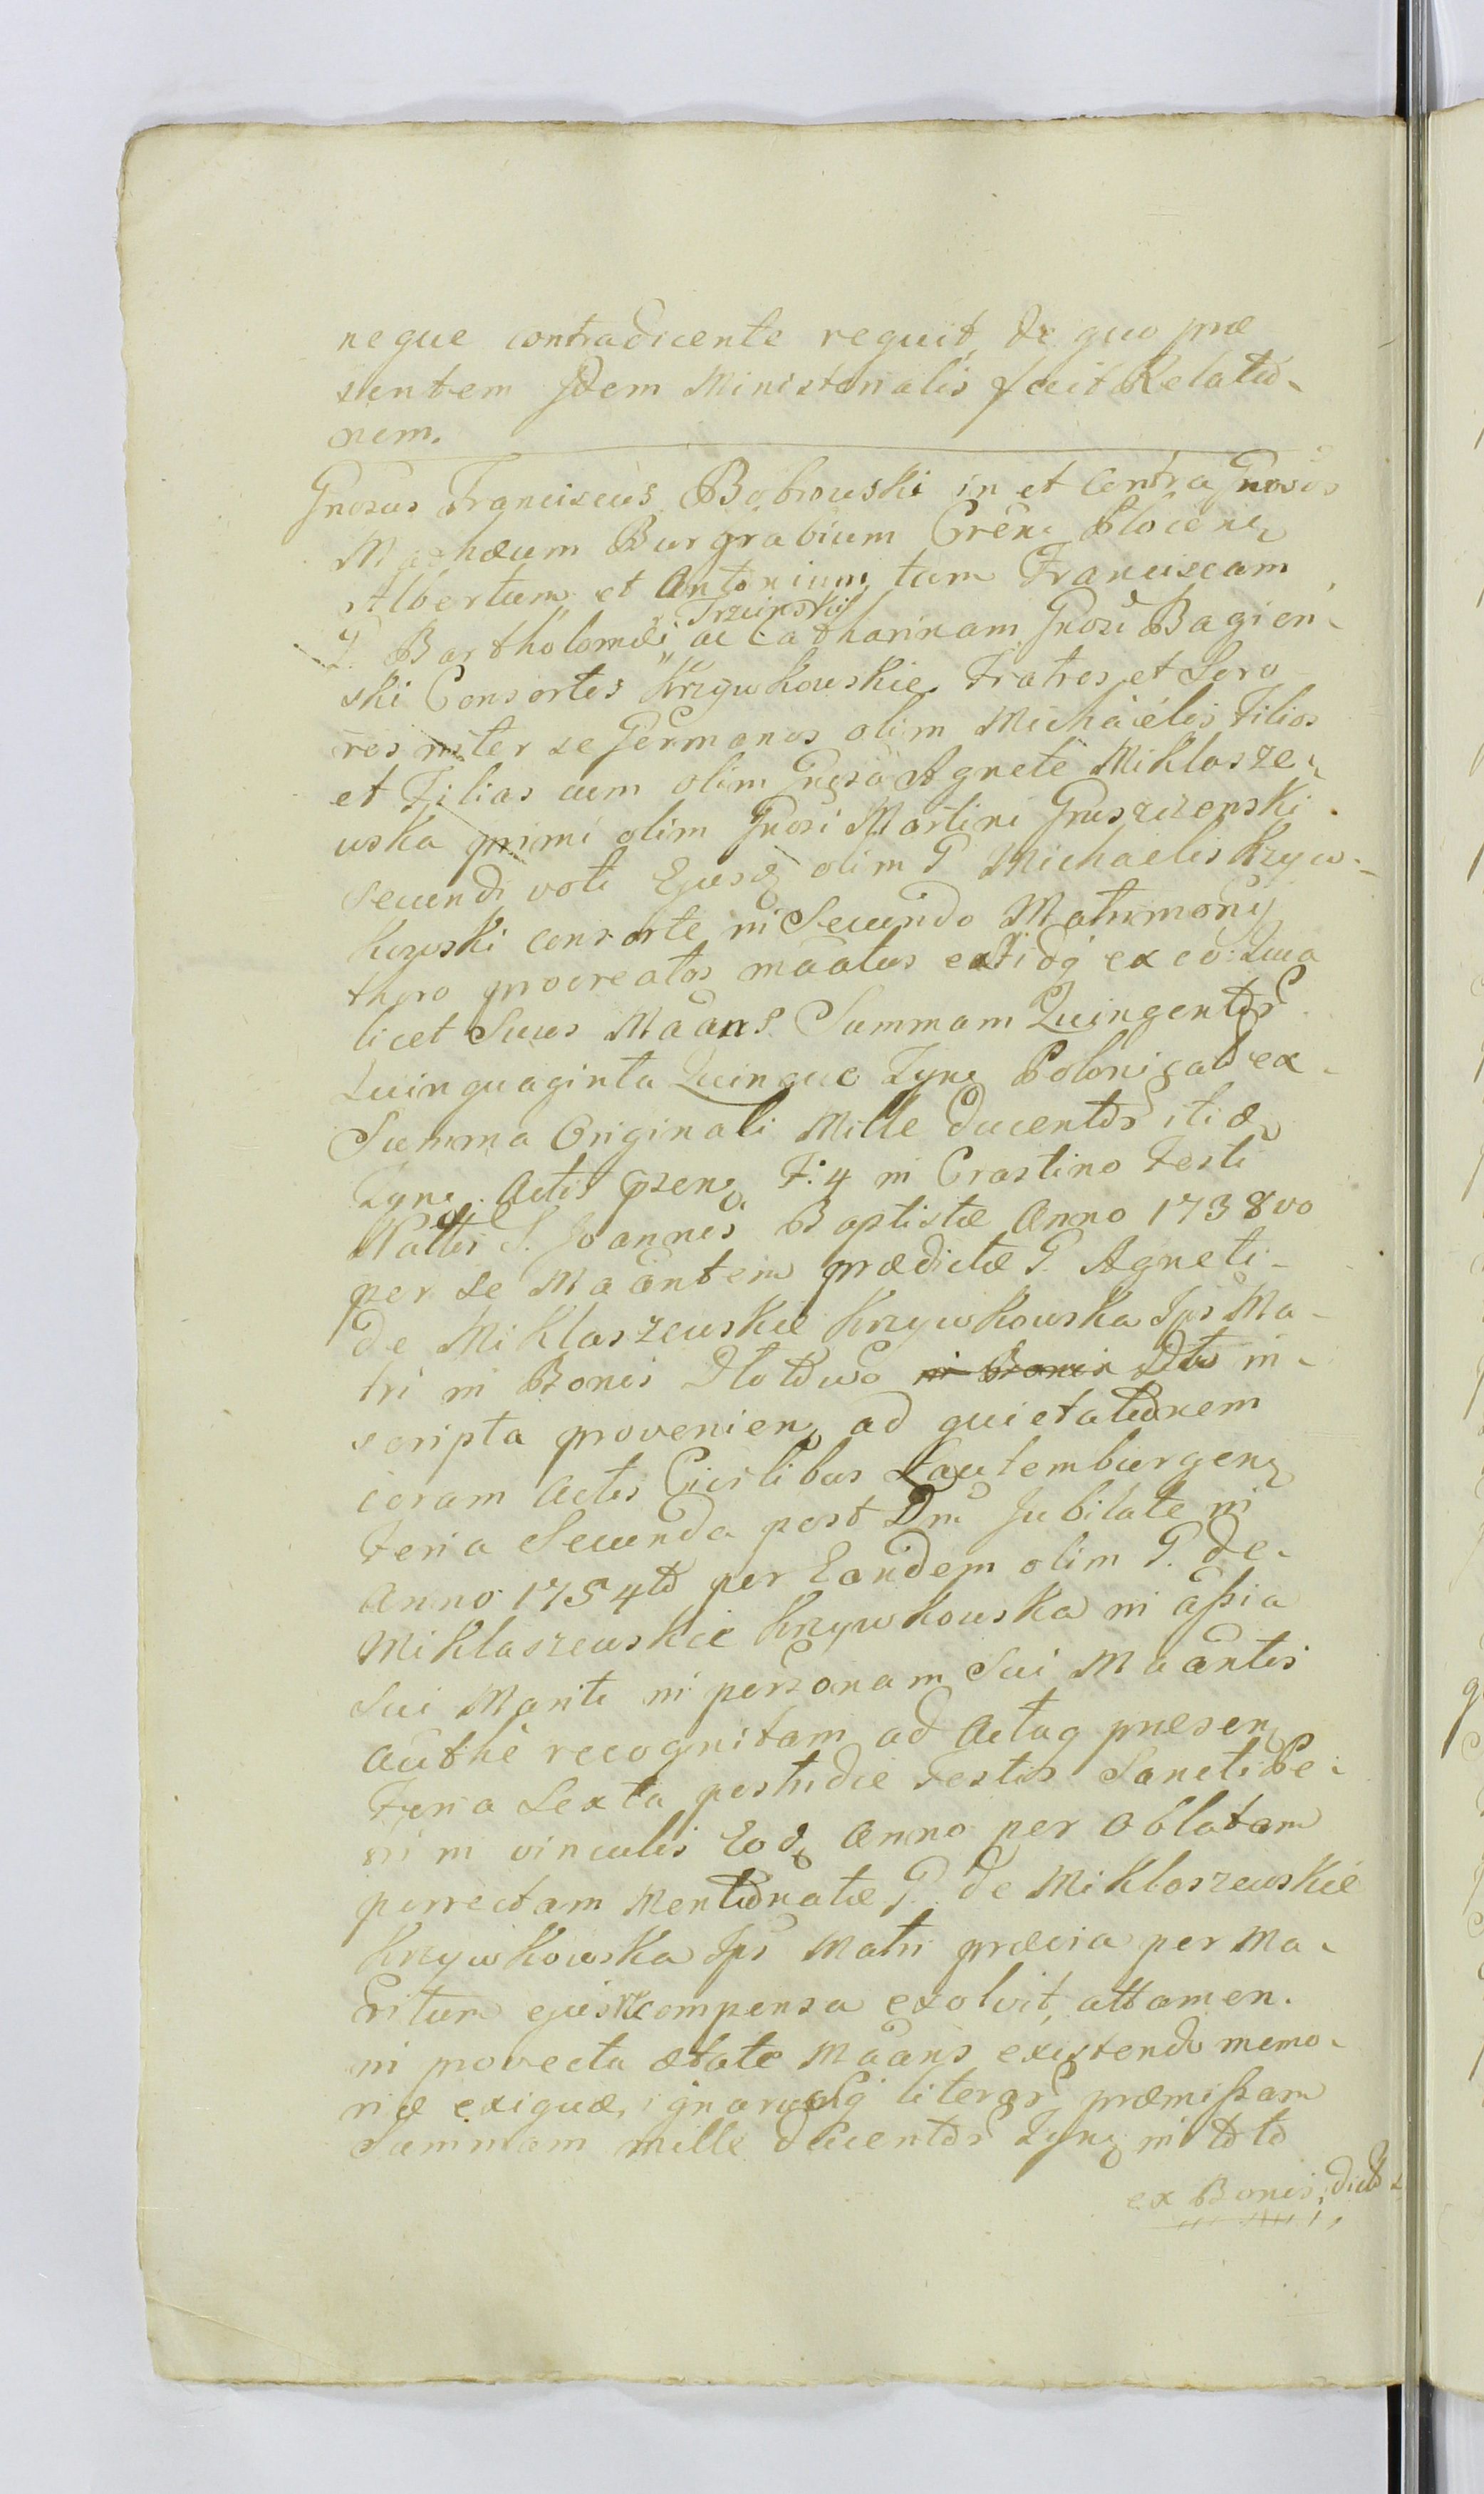 neque contradicente requit, de quo præ
sentem Idem Ministerialis fecit Relatio-
nem.
Gnosus Franciscus Bobrowski in et contra Gnosos
Mathæum Burgrabium Cren: Plocen:
Albertum et Antonium tum Franciscam
G. Bartholomæi Trzcinskij ac Catharinam Gnosi Bagien-
ski Consortes Krzywkowskie Fratres et Soro
res inter se Germanos olim Michäelis Filios
et Filias cum olim Gnosa Agnete Miklasze-
wska primi olim Gnosi Martini Gruszczenski
secundi voti Ejusdq olim G Michaelis Krzyw-
kowski consorte in Secundo Matrimonij
thoro procreatos maatus extidq ex eo: Quia
licet Suus Maans Summam Quingentor
Quinquaginta Quinque Tyne Polonicalium ex
Summa Originali Mille Ducentor itidq
Tyne Actis Præn: F: 4 in Crastino Festi
Nattis S. Joannis Baptistæ Anno 1738vo
per se Maantem prædictæ G. Agneti
de Miklaszewskie Krzywkowska Ips Ma-
tri in Bonis in Bonis Dto in-
scripta provenien: ad quietationem
coram Actis Civilibus Lautemburgen:
Feria Secunda post Dnm Jubilate in
Anno 1754to per Eandem olim G. de
Miklaszewskie Krzywkowska in assia
Sui Mariti in personam Sui Maantis
authe recognitam ad Actaq præsen:
Feria Sexta postridie Festi Sancti Pe-
tri in vinculis Eodq Anno per Oblatam
porrectam Mentionatæ G. de Miklaszewskie
Krzywkowska Ips Matri prævia per Ma-
ritum ejus recompensa exolvit, attamen
in provecta ætate Maans existendo memo-
riæ exiguæ, ignarusq literar præmissam
Summam mille ducentor Tyne in toto
ex Bonis dictis